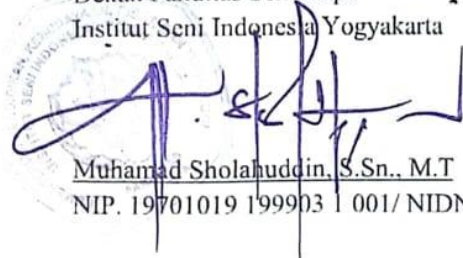 Institut Seni Indonesia Yogyakarta
Muhamad Sholahuddin, S.Sn., M.T
NIP. 19701019 199903 1 001/ NIDN